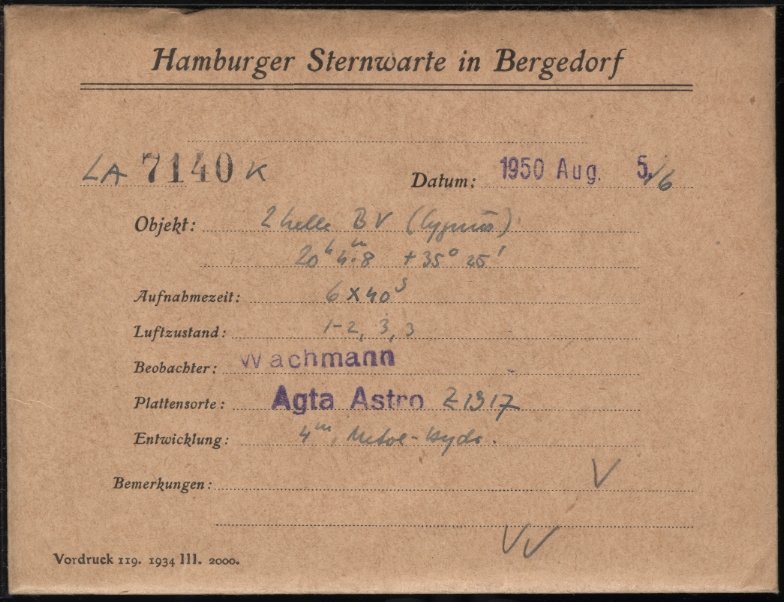 Hamburger Sternwarte in Bergedorf
LA 7140 K Datum: 1950 Aug. 5./6
Objekt: 2 helle BV (Cygnus)
20h 4m.8 +35° 25'
Aufnahmezeit: 6 x 40s
Luftzustand: 1-2, 3, 3
Beobachter: Wachmann
Plattensorte: Agfa Astro Z1317
Entwicklung: 4m, Metol-Hydr.
Bemerkungen: V
VV
Vordruck 119. 1934 III. 2000.